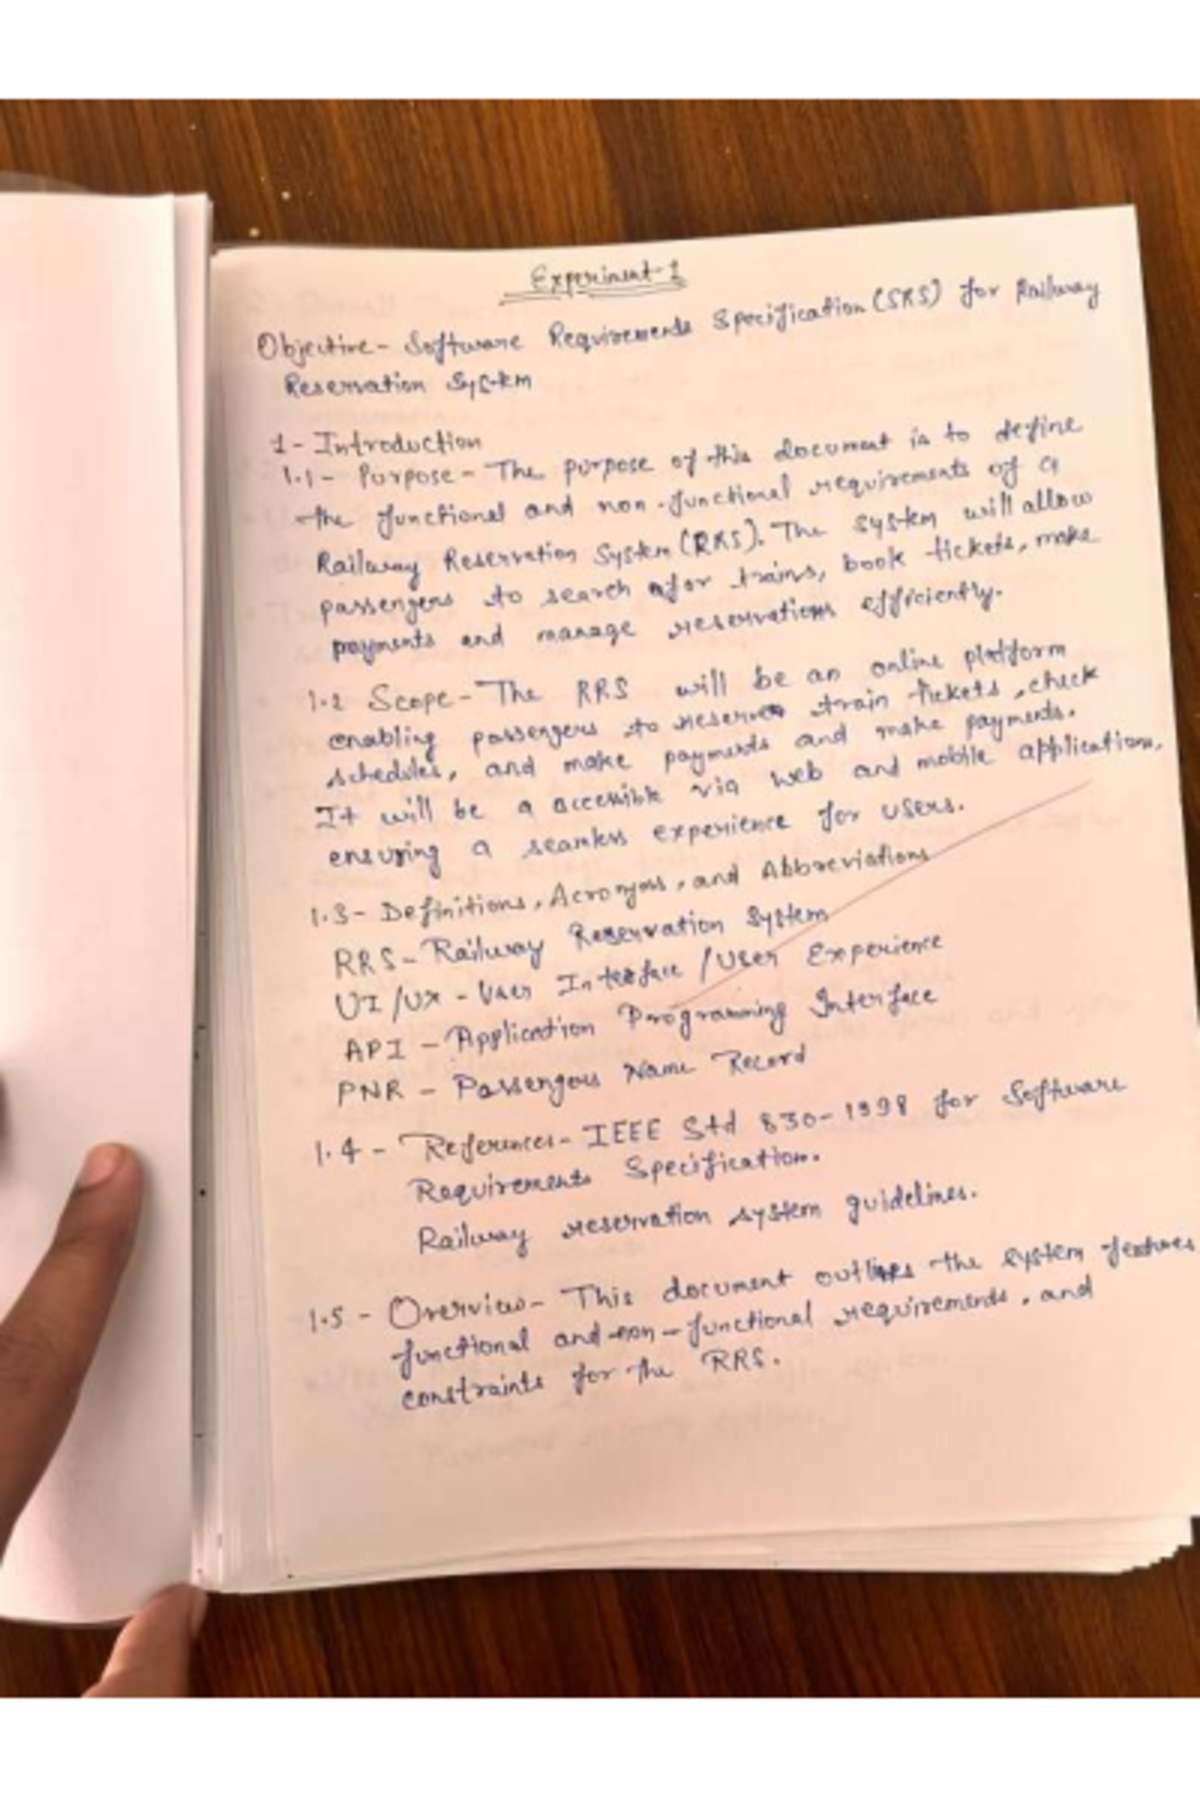 Experiment-1
Objective- Software Requirements Specification (SRS) for Railway
Reservation System
1- Introduction
1.1- Purpose- The purpose of this document is to define
the functional and non-functional requirements of a
Railway Reservation System (RRS). The system will allow
passengers to search for trains, book tickets, make
payments and manage reservations efficiently.
1.2 Scope- The RRS will be an online platform
enabling passengers to reserve train tickets, check
schedules, and make payments and make payments.
It will be a accessible via web and mobile application,
ensuring a seamless experience for users.
1.3- Definitions, Acronyms, and Abbreviations
RRS- Railway Reservation System
UI/UX - User Interface / User Experience
API - Application Programming Interface
PNR - Passengers Name Record
1.4 - References- IEEE Std 830-1998 for Software
Requirements Specification.
Railway reservation system guidelines.
1.5 - Overview- This document outlines the system features
functional and non-functional requirements, and
constraints for the RRS.